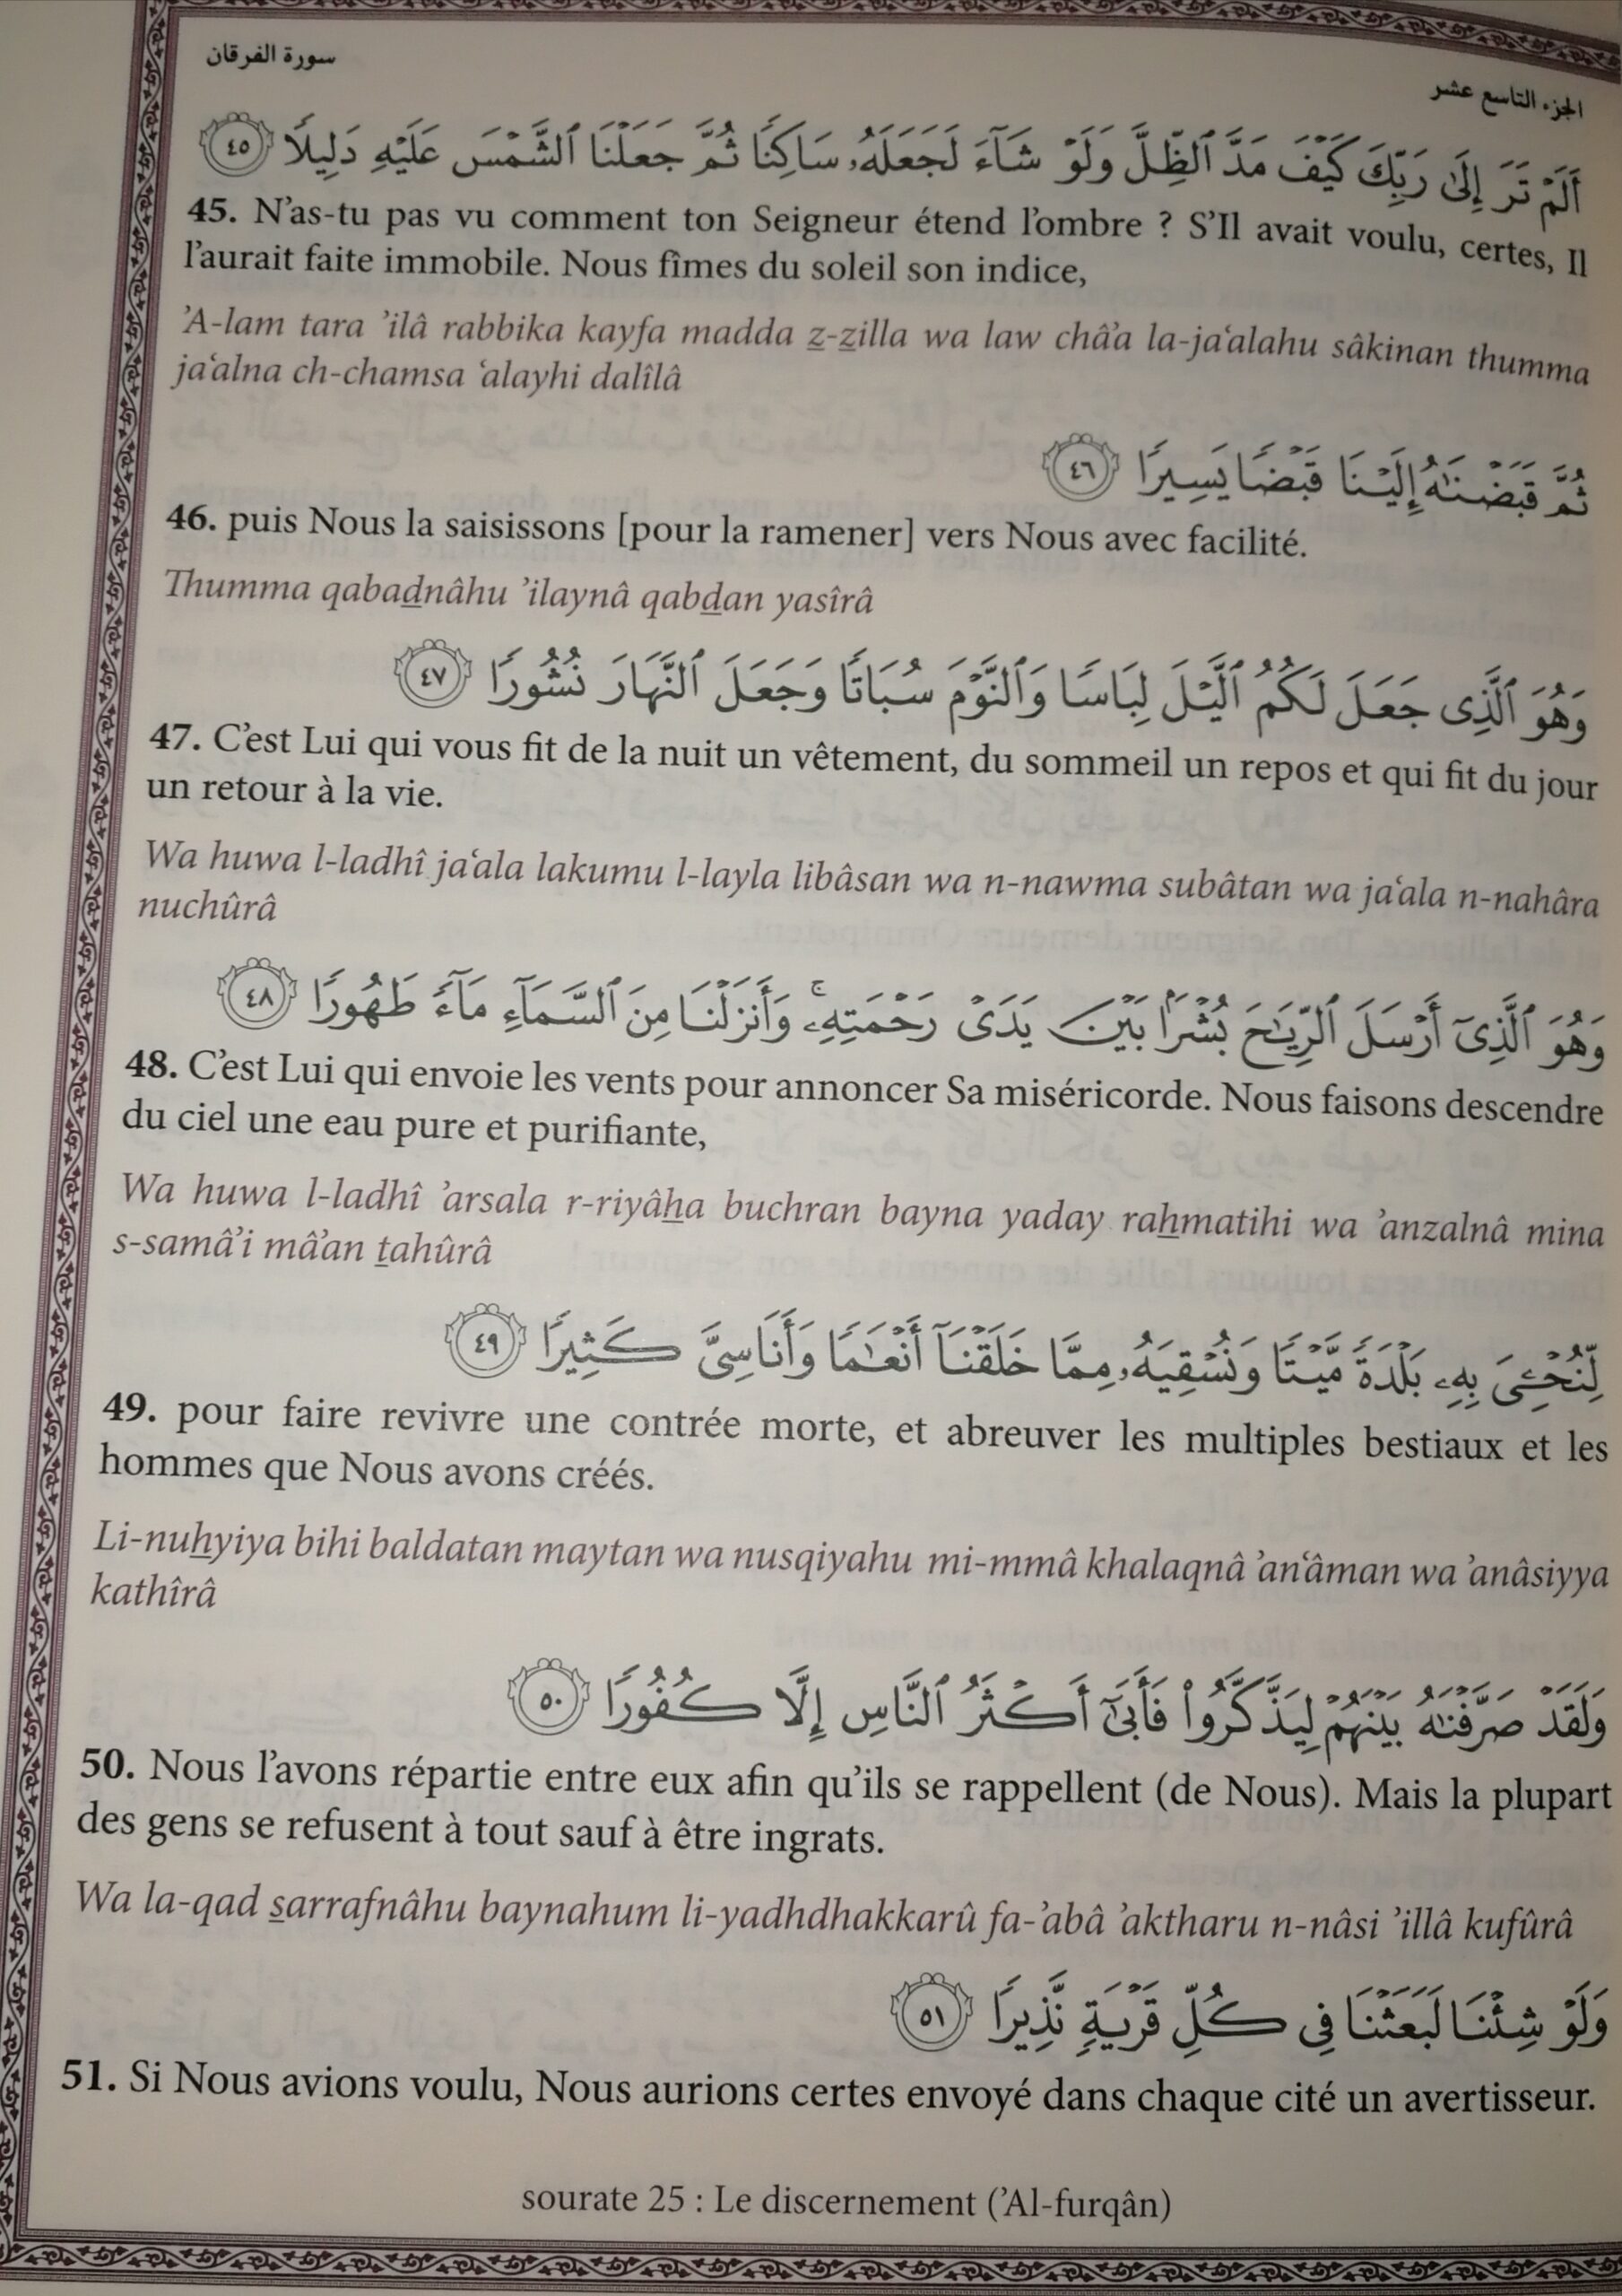 سورة الفرقان
الجزء التاسع عشر
أَلَمْ تَرَ إِلَىٰ رَبِّكَ كَيْفَ مَدَّ ٱلظِّلَّ وَلَوْ شَآءَ لَجَعَلَهُۥ سَاكِنًا ثُمَّ جَعَلْنَا ٱلشَّمْسَ عَلَيْهِ دَلِيلًا ٤٥
45. N’as-tu pas vu comment ton Seigneur étend l’ombre ? S’Il avait voulu, certes, Il
l’aurait faite immobile. Nous fîmes du soleil son indice,
’A-lam tara ’ilâ rabbika kayfa madda z-zilla wa law châ’a la-ja‘alahu sâkinan thumma
ja‘alna ch-chamsa ‘alayhi dalîlâ
ثُمَّ قَبَضْنَٰهُ إِلَيْنَا قَبْضًا يَسِيرًا ٤٦
46. puis Nous la saisissons [pour la ramener] vers Nous avec facilité.
Thumma qabadnâhu ’ilaynâ qabdan yasîrâ
وَهُوَ ٱلَّذِى جَعَلَ لَكُمُ ٱلَّيْلَ لِبَاسًا وَٱلنَّوْمَ سُبَاتًا وَجَعَلَ ٱلنَّهَارَ نُشُورًا ٤٧
47. C’est Lui qui vous fit de la nuit un vêtement, du sommeil un repos et qui fit du jour
un retour à la vie.
Wa huwa l-ladhî ja‘ala lakumu l-layla libâsan wa n-nawma subâtan wa ja‘ala n-nahâra
nuchûrâ
وَهُوَ ٱلَّذِىٓ أَرْسَلَ ٱلرِّيَٰحَ بُشْرًۢا بَيْنَ يَدَىْ رَحْمَتِهِۦۚ وَأَنزَلْنَا مِنَ ٱلسَّمَآءِ مَآءً طَهُورًا ٤٨
48. C’est Lui qui envoie les vents pour annoncer Sa miséricorde. Nous faisons descendre
du ciel une eau pure et purifiante,
Wa huwa l-ladhî ’arsala r-riyâha buchran bayna yaday rahmatihi wa ’anzalnâ mina
s-samâ’i mâ’an tahûrâ
لِّنُحْـِۧىَ بِهِۦ بَلْدَةً مَّيْتًا وَنُسْقِيَهُۥ مِمَّا خَلَقْنَآ أَنْعَٰمًا وَأَنَاسِىَّ كَثِيرًا ٤٩
49. pour faire revivre une contrée morte, et abreuver les multiples bestiaux et les
hommes que Nous avons créés.
Li-nuhyiya bihi baldatan maytan wa nusqiyahu mi-mmâ khalaqnâ ’an‘âman wa ’anâsiyya
kathîrâ
وَلَقَدْ صَرَّفْنَٰهُ بَيْنَهُمْ لِيَذَّكَّرُوا۟ فَأَبَىٰٓ أَكْثَرُ ٱلنَّاسِ إِلَّا كُفُورًا ٥٠
50. Nous l’avons répartie entre eux afin qu’ils se rappellent (de Nous). Mais la plupart
des gens se refusent à tout sauf à être ingrats.
Wa la-qad sarrafnâhu baynahum li-yadhdhakkarû fa-’abâ ’aktharu n-nâsi ’illâ kufûrâ
وَلَوْ شِئْنَا لَبَعَثْنَا فِى كُلِّ قَرْيَةٍ نَّذِيرًا ٥١
51. Si Nous avions voulu, Nous aurions certes envoyé dans chaque cité un avertisseur.
sourate 25 : Le discernement (’Al-furqân)